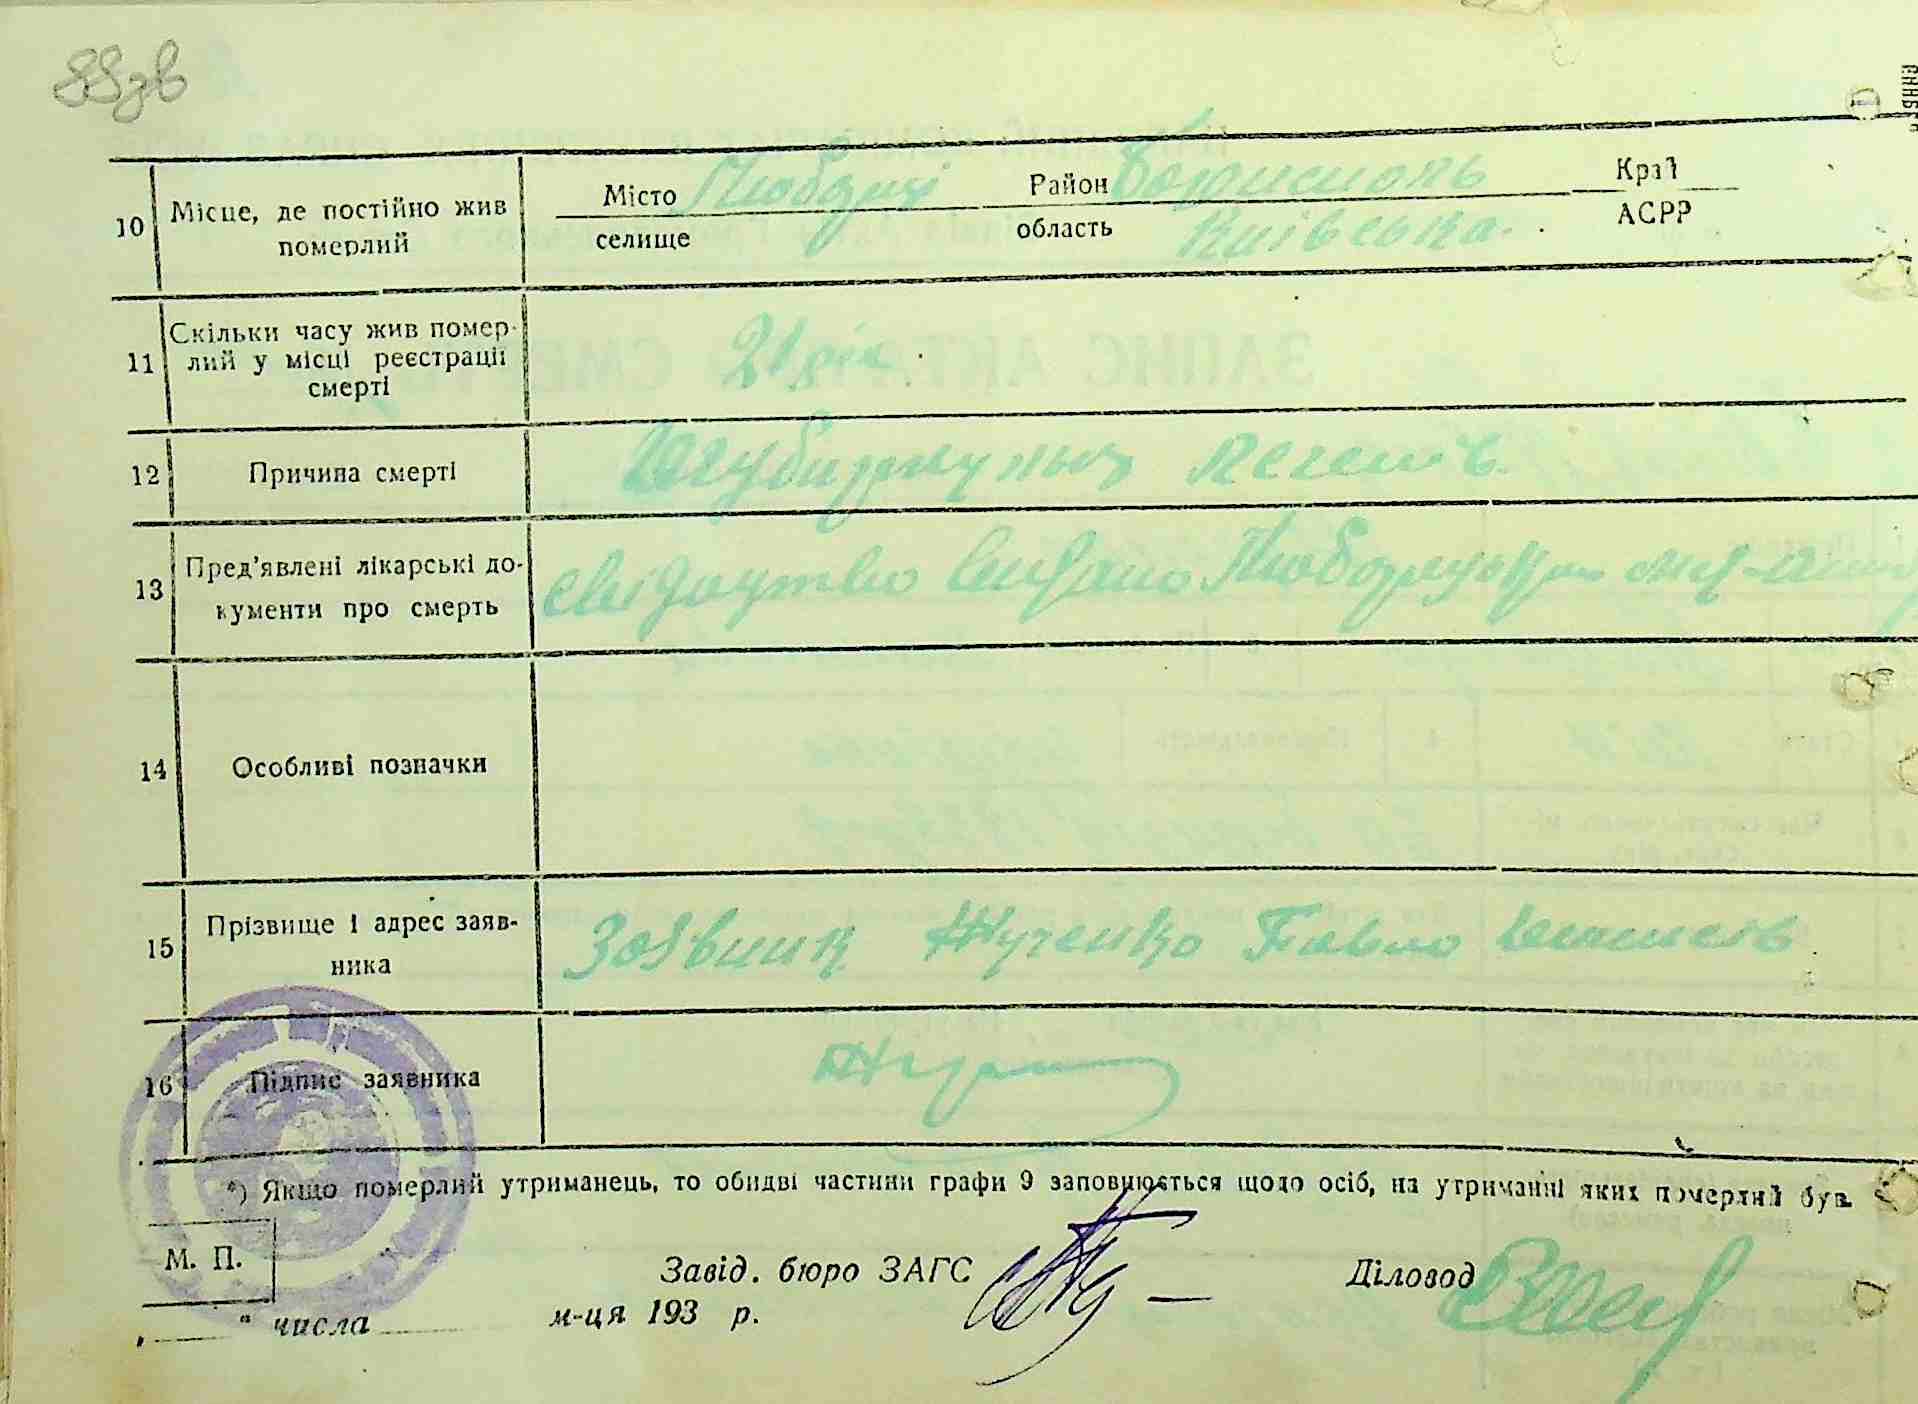 88зв
Місто Любарці Район Бориспіль Край
10 Місце, де постійно жив померлий
селище область Київська АСРР
11 Скільки часу жив помер-
лий у місці реєстрації
смерті
21 рік
12 Причина смерті
легенів
13 Пред'явлені лікарські до-
кументи про смерть
видано
14 Особливі позначки
15 Прізвище і адрес заяв-
ника
Заявник Жученко Павло
16 Підпис заявника
*) Якщо померлий утриманець, то обидві частини графи 9 заповнюється щодо осіб, на утриманні яких померлий був.
М. П.
Завід. бюро ЗАГС Діловод
„ " числа м-ця 193 р.